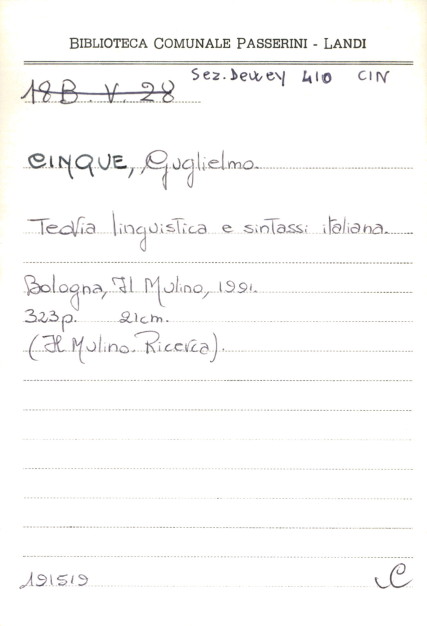 BIBLIOTECA COMUNALE PASSERINI - LANDI
18B. V. 28 Sez. Dewey 410 CIN
CINQUE, Guglielmo.
Teoria linguistica e sintassi italiana.
Bologna, Il Mulino, 1991.
323p. 21cm.
(Il Mulino. Ricerca).
191519 C